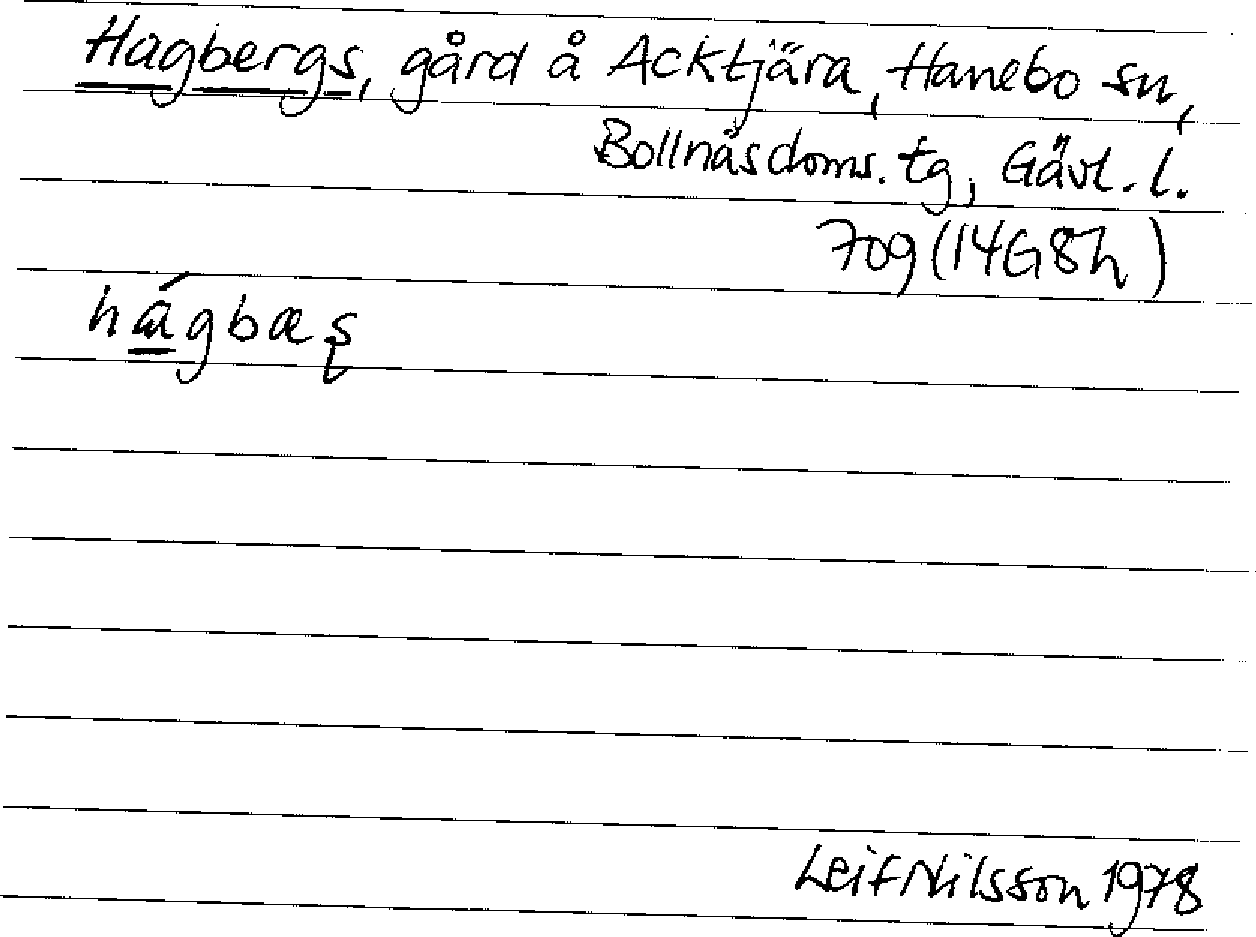 Hagbergs, gård å Acktjära, Hanebo sn,
Bollnäs doms. tg, Gävl. l.
709 (14G8h)
hágbæʂ
Leif Nilsson 1978